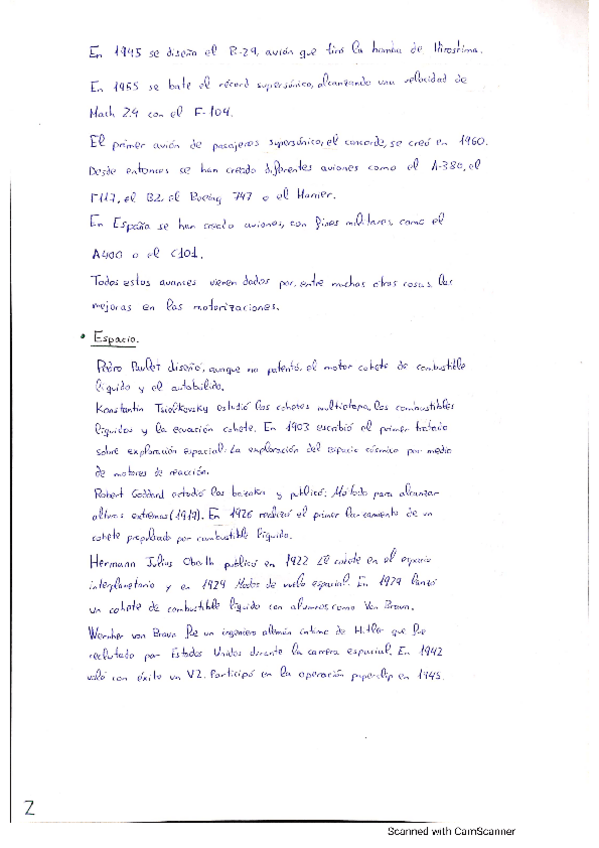 En 1945 se diseña el B-29, avión que tiró la bomba de Hiroshima.
En 1965 se bate el récord supersónico, alcanzando una velocidad de
Mach 2.4 con el F-104.
El primer avión de pasajeros supersónico, el concorde, se creó en 1960.
Desde entonces se han creado diferentes aviones como el A-380, el
F117, el B2, el Boeing 747 o el Harrier.
En España se han creado aviones, con fines militares, como el
A400 o el C101.
Todos estos avances vienen dados por, entre muchas otras cosas, las
mejoras en las motorizaciones.
• Espacio.
Pedro Paulet diseñó, aunque no patentó, el motor cohete de combustible
líquido y el autobólido.
Konstantin Tsiolkovsky estudió los cohetes multietapa, los combustibles
líquidos y la ecuación cohete. En 1903 escribió el primer tratado
sobre exploración espacial: La exploración del espacio cósmico por medio
de motores de reacción.
Robert Goddard estudió los bazokas y publicó: Método para alcanzar
alturas extremas (1919). En 1926 realizó el primer lanzamiento de un
cohete propulsado por combustible líquido.
Hermann Julius Oberth publicó en 1922 El cohete en el espacio
interplanetario y en 1929 Modos de vuelo espacial. En 1929 lanzó
un cohete de combustible líquido con alumnos como Von Braun.
Wernher von Braun fue un ingeniero alemán íntimo de Hitler que fue
reclutado por Estados Unidos durante la carrera espacial. En 1942
voló con éxito un V2. Participó en la operación paperclip en 1945.
2
Scanned with CamScanner